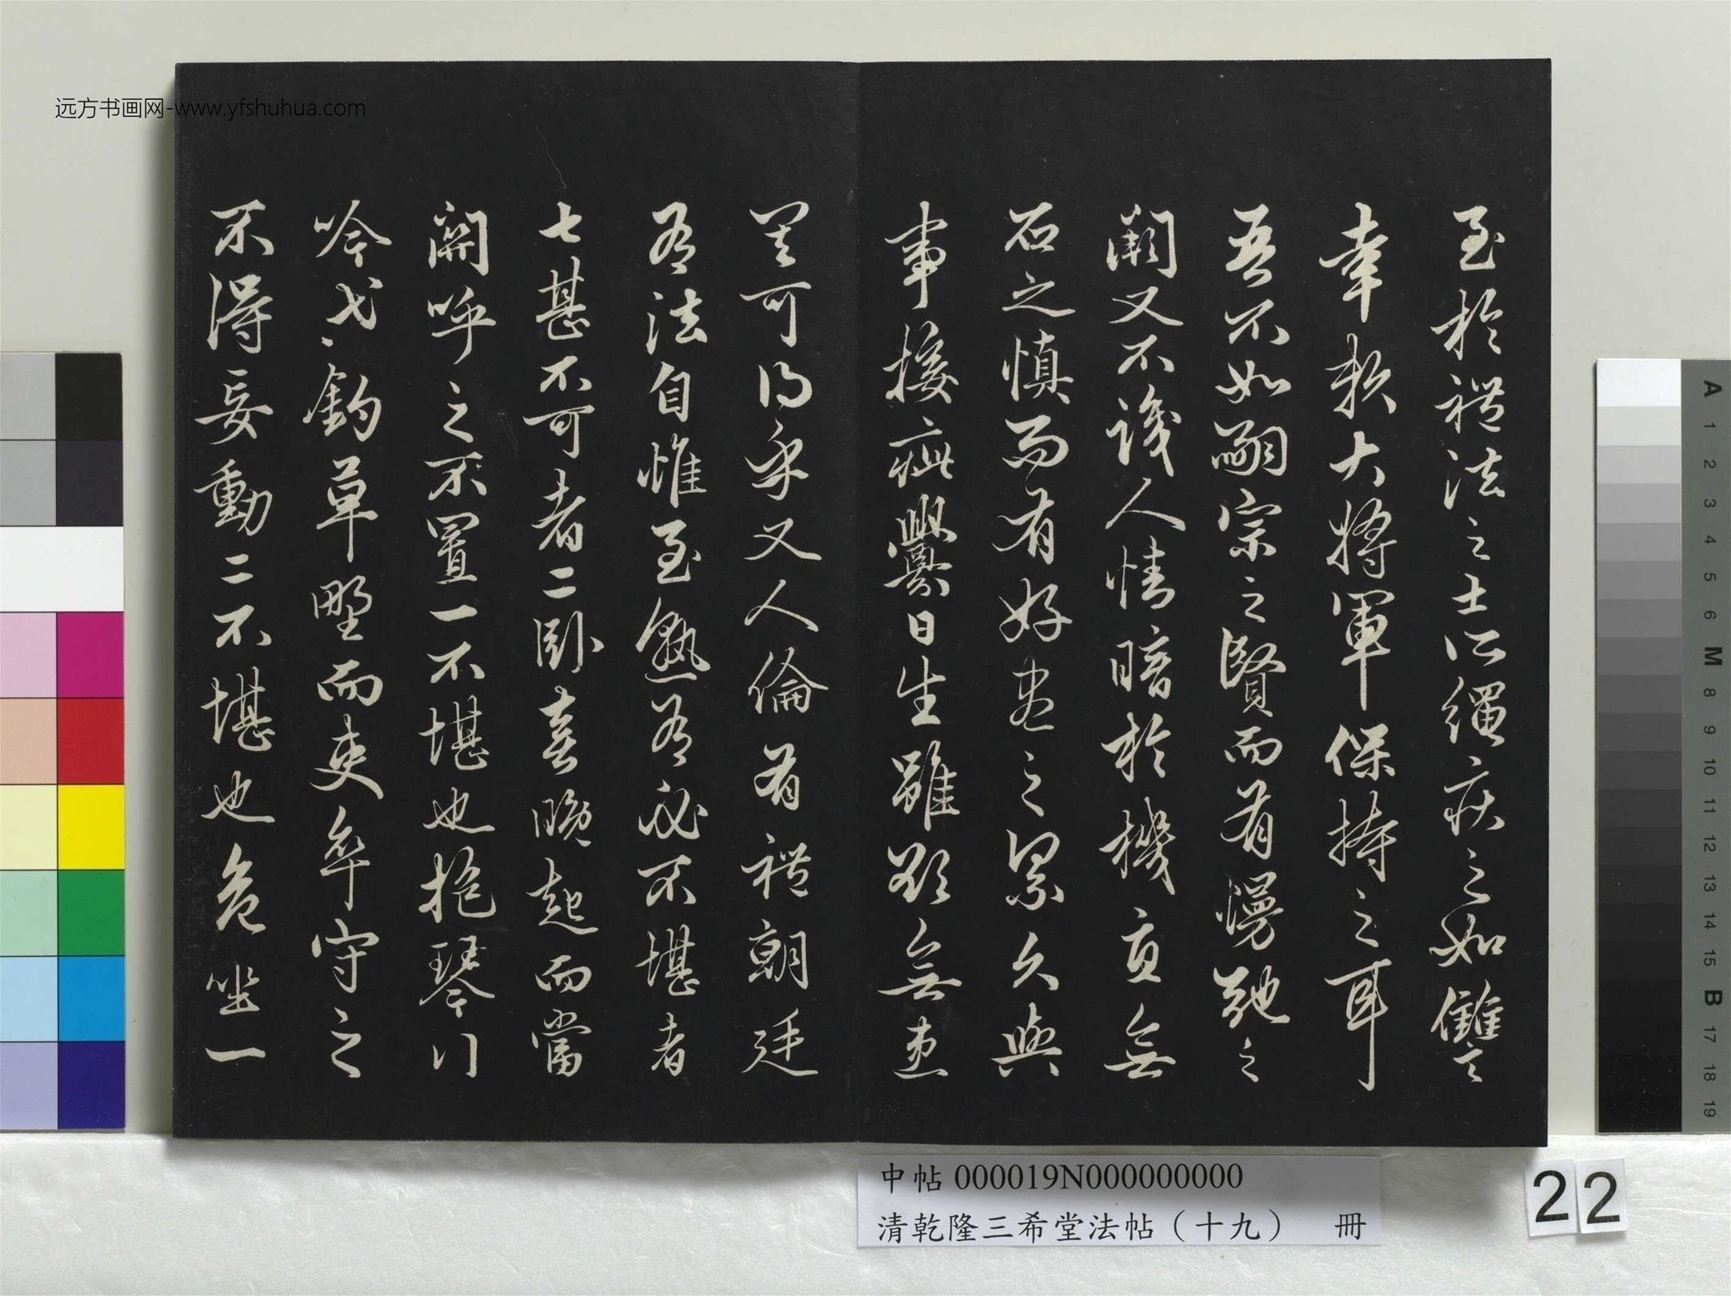 至於禮法之士所繩疾之如讎
幸賴大將軍保持之耳
吾不如嗣宗之賢而有慢弛之
闕又不識人情暗於機宜無
石之慎而有好盡之累久與
事接疵釁日生雖欲無患
其可得乎又人倫有禮朝廷
有法自惟至熟有必不堪者
七甚不可者二臥喜晚起而當
關呼之不置一不堪也抱琴行
吟弋釣草野而吏卒守之
不得妄動二不堪也危坐一
远方书画网-www.yfshuhua.com
中帖 000019N000000000
清乾隆三希堂法帖（十九） 冊
22
A
1
2
3
4
5
6
M
8
9
10
11
12
13
14
15
B
17
18
19